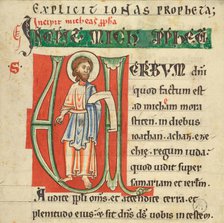 Explicit ionas propheta;
Incipit micheas ppha
VERBUM dñi
quod factum est
ad micham mora
sthiten. in diebus
ioathan. achaz. eze
chie. regum iuda:
quod uidit super
samariam et ierłm.
Audite ppłi om̄s. et attendat terra. et
plenitudo eius. et sit dñs ds̄ uobis in testem